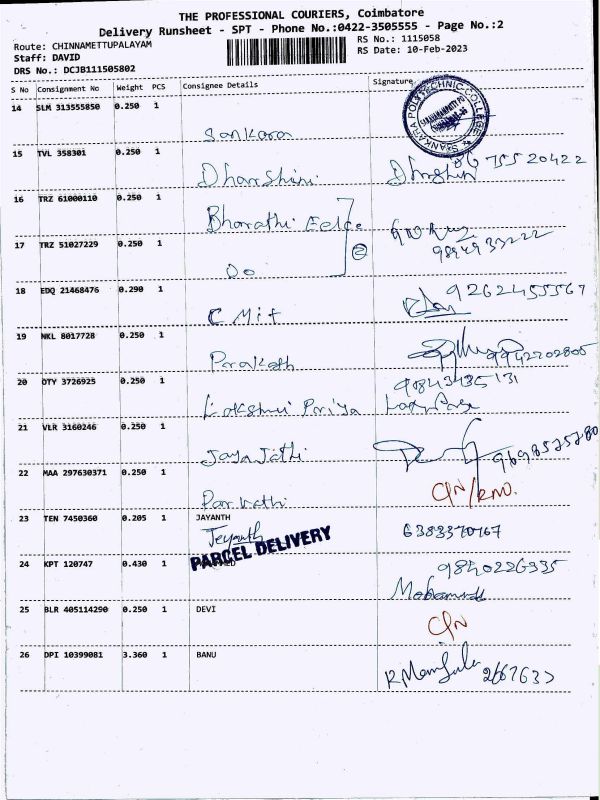 THE PROFESSIONAL COURIERS, Coimbatore
Delivery Runsheet - SPT - Phone No.:0422-3505555 - Page No.:2
Route: CHINNAMETTUPALAYAM
RS No.: 1115058
Staff: DAVID
RS Date: 10-Feb-2023
DRS No.: DCJB111505802
S No Consignment No Weight PCS Consignee Details Signature
14 SLM 313555850 0.250 1 Sankara
SANKARA POLYTECHNIC COLLEGE
15 TVL 358301 0.250 1 Dharshini 86 755 20422
16 TRZ 61000110 0.250 1 Bharathi
17 TRZ 51027229 0.250 1 Do 2 9894933222
18 EDQ 21468476 0.290 1 C Mit 9262455567
19 NKL 8017728 0.250 1 Parakath 9942202805
20 OTY 3726925 0.250 1 Lakshmi Pariya 9843435131
21 VLR 3160246 0.250 1 Jaya Jothi 9698525280
22 MAA 297630371 0.250 1 Parvathi C/N/RNO.
23 TEN 7450360 0.205 1 JAYANTH
Jeyanth 6383370767
PARCEL DELIVERY
24 KPT 120747 0.430 1 9840226335
Mohamed
25 BLR 405114290 0.250 1 DEVI C/N
26 DPI 10399081 3.360 1 BANU R Manjula